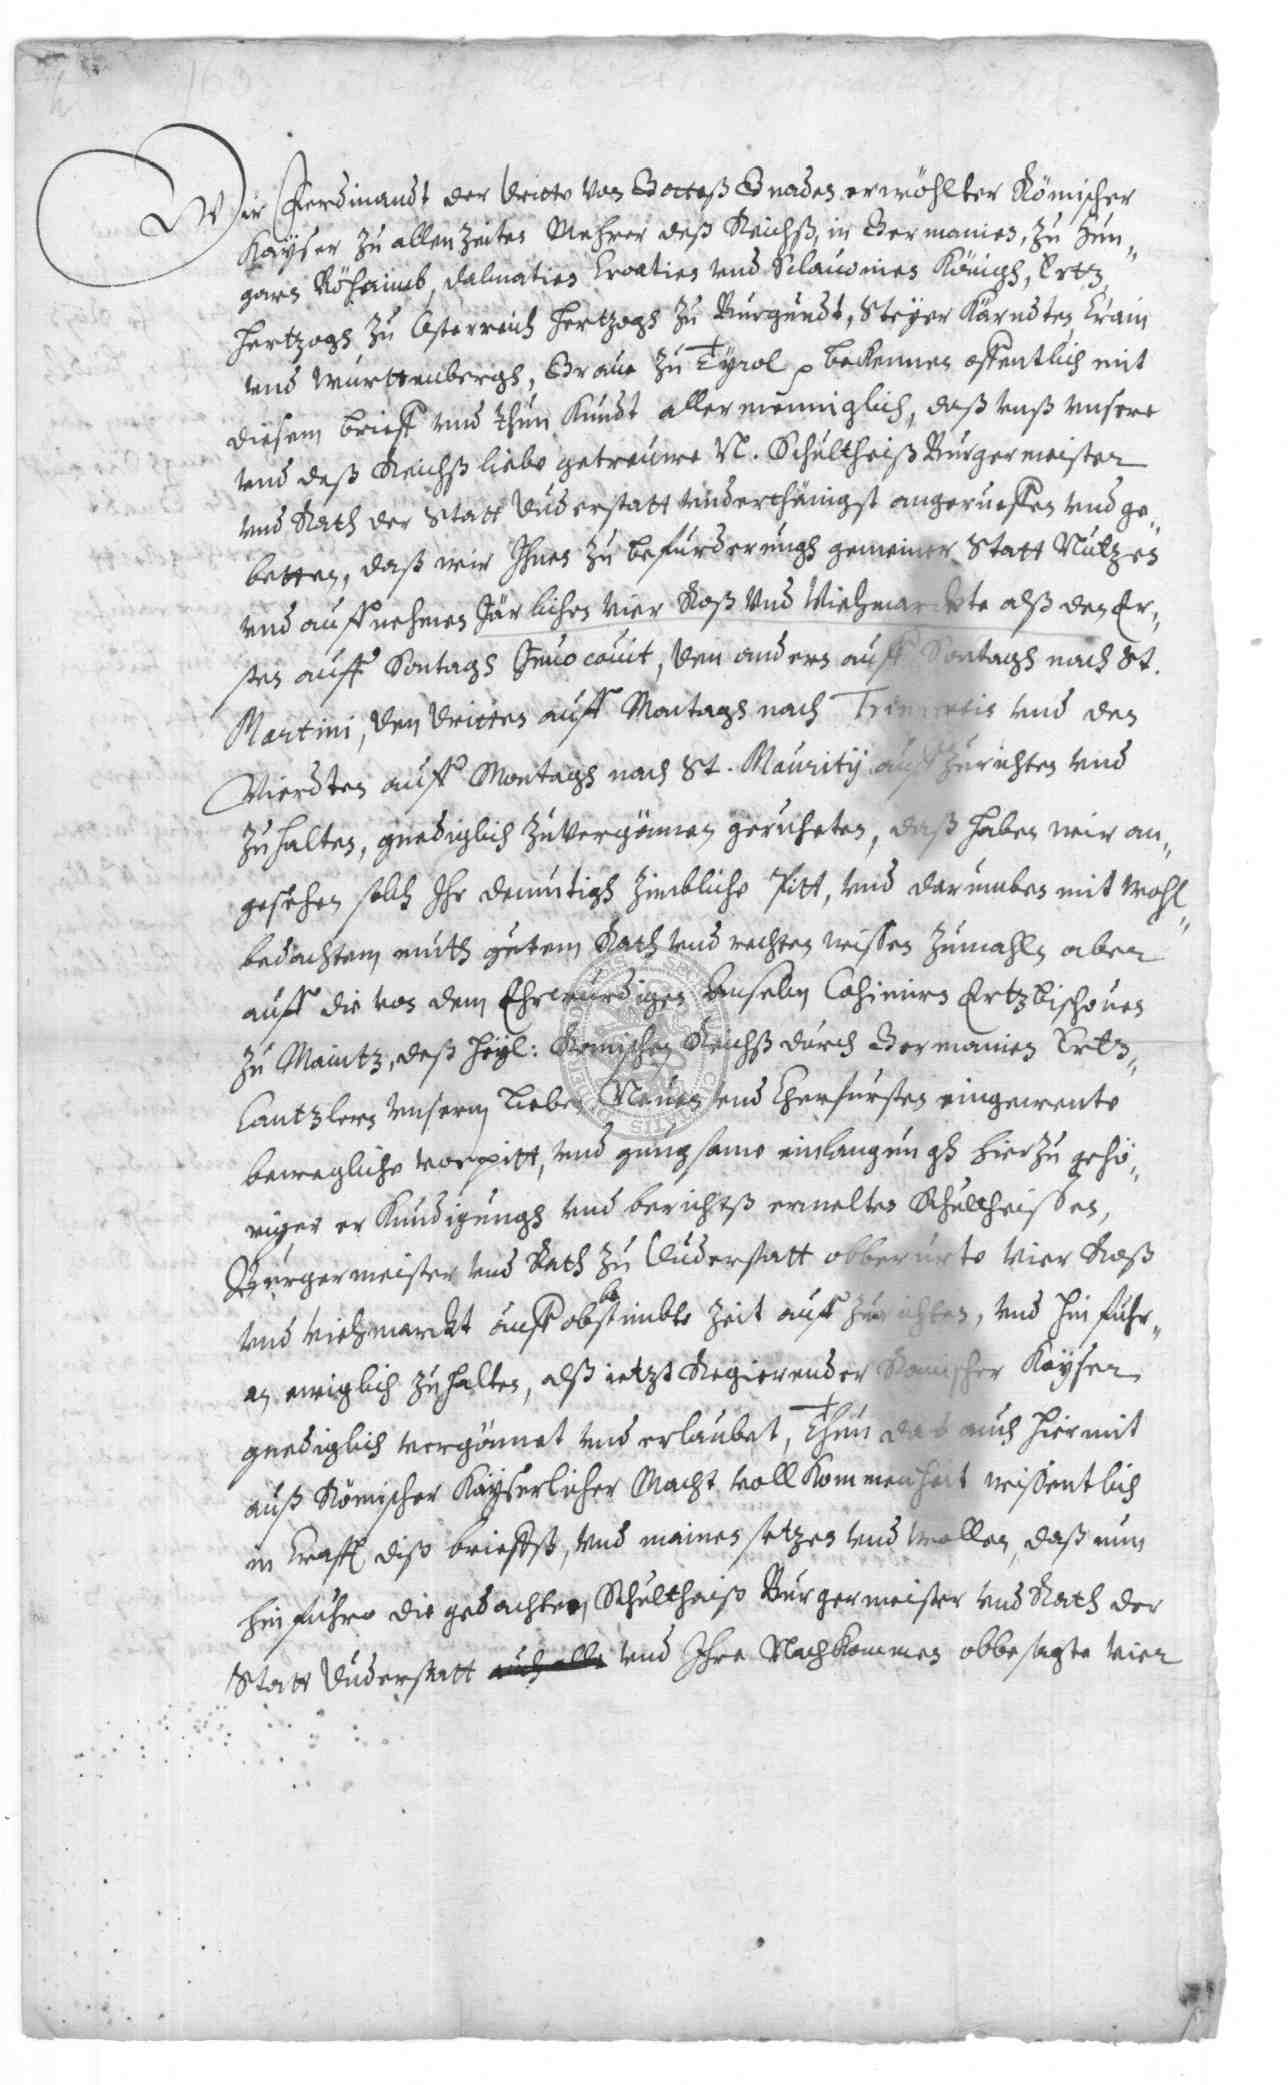 Wir Ferdinandt der dritte von Gotteß Gnaden erwöhlter Römischer
Kayser zu allen Zeiten Mehrer deß Reichß, in Germanien, zu Hun„
garn Böhaimb, Dalmatien Croatien vnd Sclauonien Königh, Ertz„
Hertzogh zu Österreich Hertzogh zu Burgundt, Steyer Kärndten Crain
vnd Wurttenbergh, Graue zu Tyrol p bekennen offentlich mit
diesem brieff vnd thun kundt allermenniglich, daß vnß vnsere
vnd deß Reichß liebe getreuwe N. Schultheiß Burgermeister
vnd Rath der Statt Duderstatt vnderthänigst angerueffen vnd ge„
betten, daß wir Ihnen zu befurderungh gemeiner Statt Nutzen
vnd auffnehmen Järlichen vier Roß vnd Viehmarckte alß den Er„
sten auff Sontagh Inuocauit, den andern auff Sontagh nach St.
Martini, den dritten auff Montagh nach Trinitatis vnd den
Vierdten auff Montagh nach St. Maurity auffzurichten vnd
zuhalten, gnediglich zuvergönnen geruheten, daß haben wir an„
gesehen solch Ihr demütigh zimbliche Pitt, vnd darumben mit wohl„
bedachtem muth gutem Rath vnd rechten wissen zumahln aber
auff die von dem Ehrwurdigen Anselm Casimirn Ertzbischouen
zu Maintz, deß Heyl: Römischen Reichß durch Germanien Ertz„
Cantzlern vnserm Lieben Neuen vnd Churfursten eingewente
bewegliche vorpitt, vnd gnugsame einlangungh hierzu gehö„
riger erkundigungh vnd berichtß ermelten Schultheissen,
Burgermeister vnd Rath zu Duderstatt obberurte vier Roß
vnd viehmarckt auff obbestimbte Zeit auffzurichten, vnd hinfuhr„
an ewiglich zuhalten, alß ietzt Regierender Römischer Kayser
gnediglich vergönnet vnd erlaubet, Thun daß auch hiermit
auß Römischer Kayserlicher Macht vollkommenheit wissentlich
in krafft diß brieffß, vnd meinen setzen vnd wollen, daß nun
hinfuhro die gedachten Schultheiß Burgermeister vnd Rath der
Statt Duderstatt auch alle vnd Ihre Nachkommen obbesagte vier